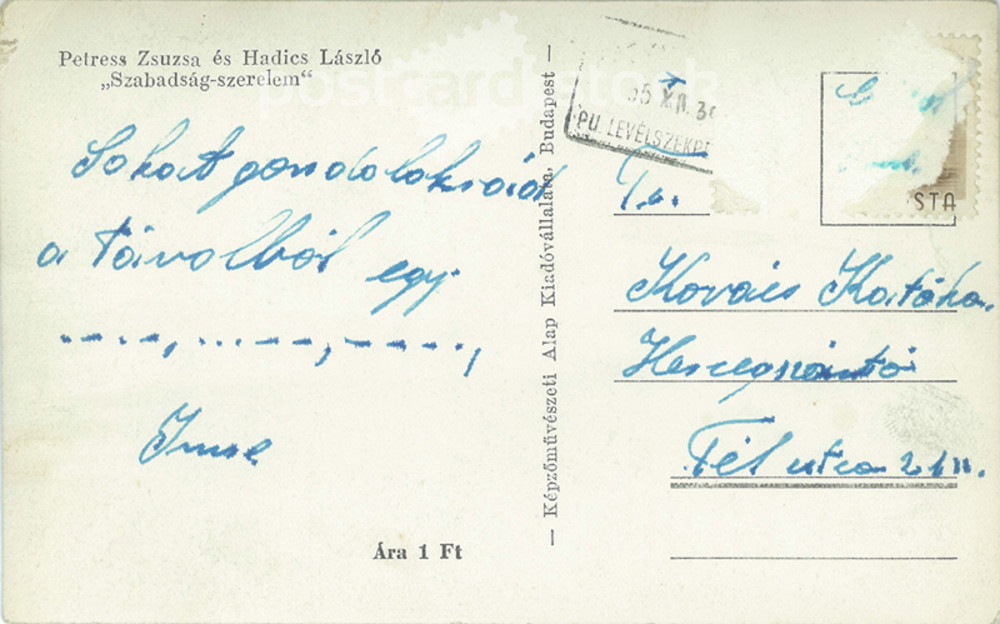 Petress Zsuzsa és Hadics László
„Szabadság-szerelem“
Sokat gondolok reád
a távolból egy
Imre
Ára 1 Ft
— Képzőművészeti Alap Kiadóvállalata, Budapest —
55 XII. 30
PU. LEVÉLSZEKR
STA
Kovács Katóka.
Hercegszántó
Fél utca 21n.